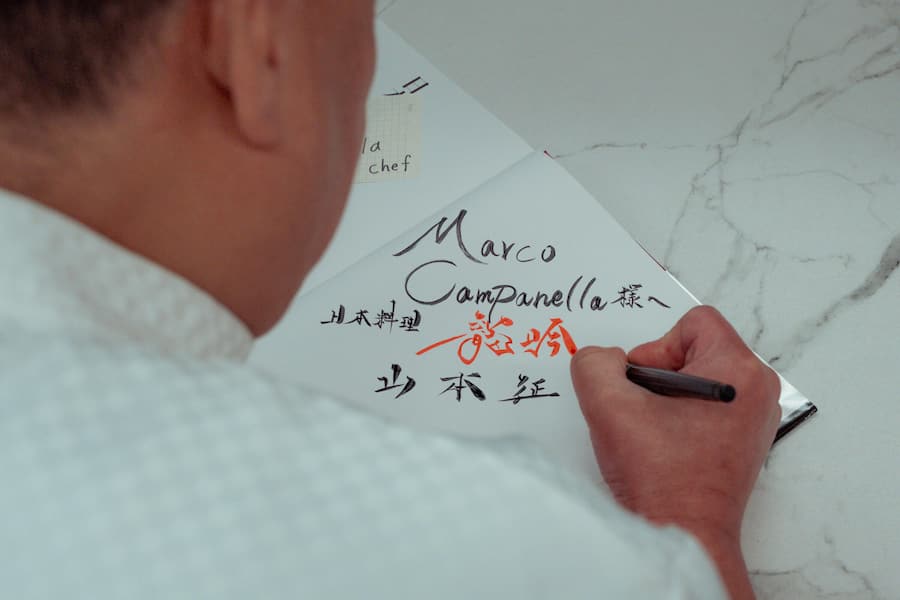 la
chef
Marco
Campanella様へ
日本料理 龍吟
山本征